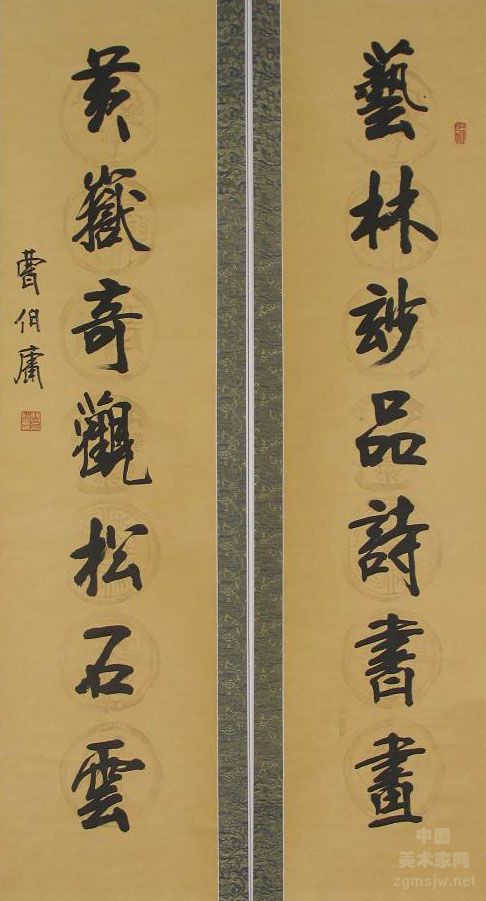 藝林玅品詩書畫
黃嶽奇觀松石雲
曹伯庸
中国
美术家网
zgmsjw.net